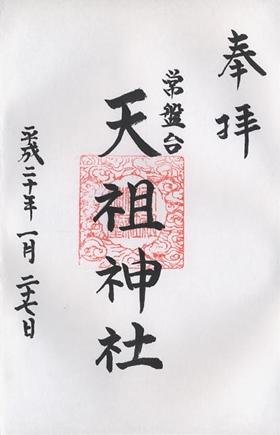 奉拝
常盤台
天祖神社
平成二十年 一月 二十七日